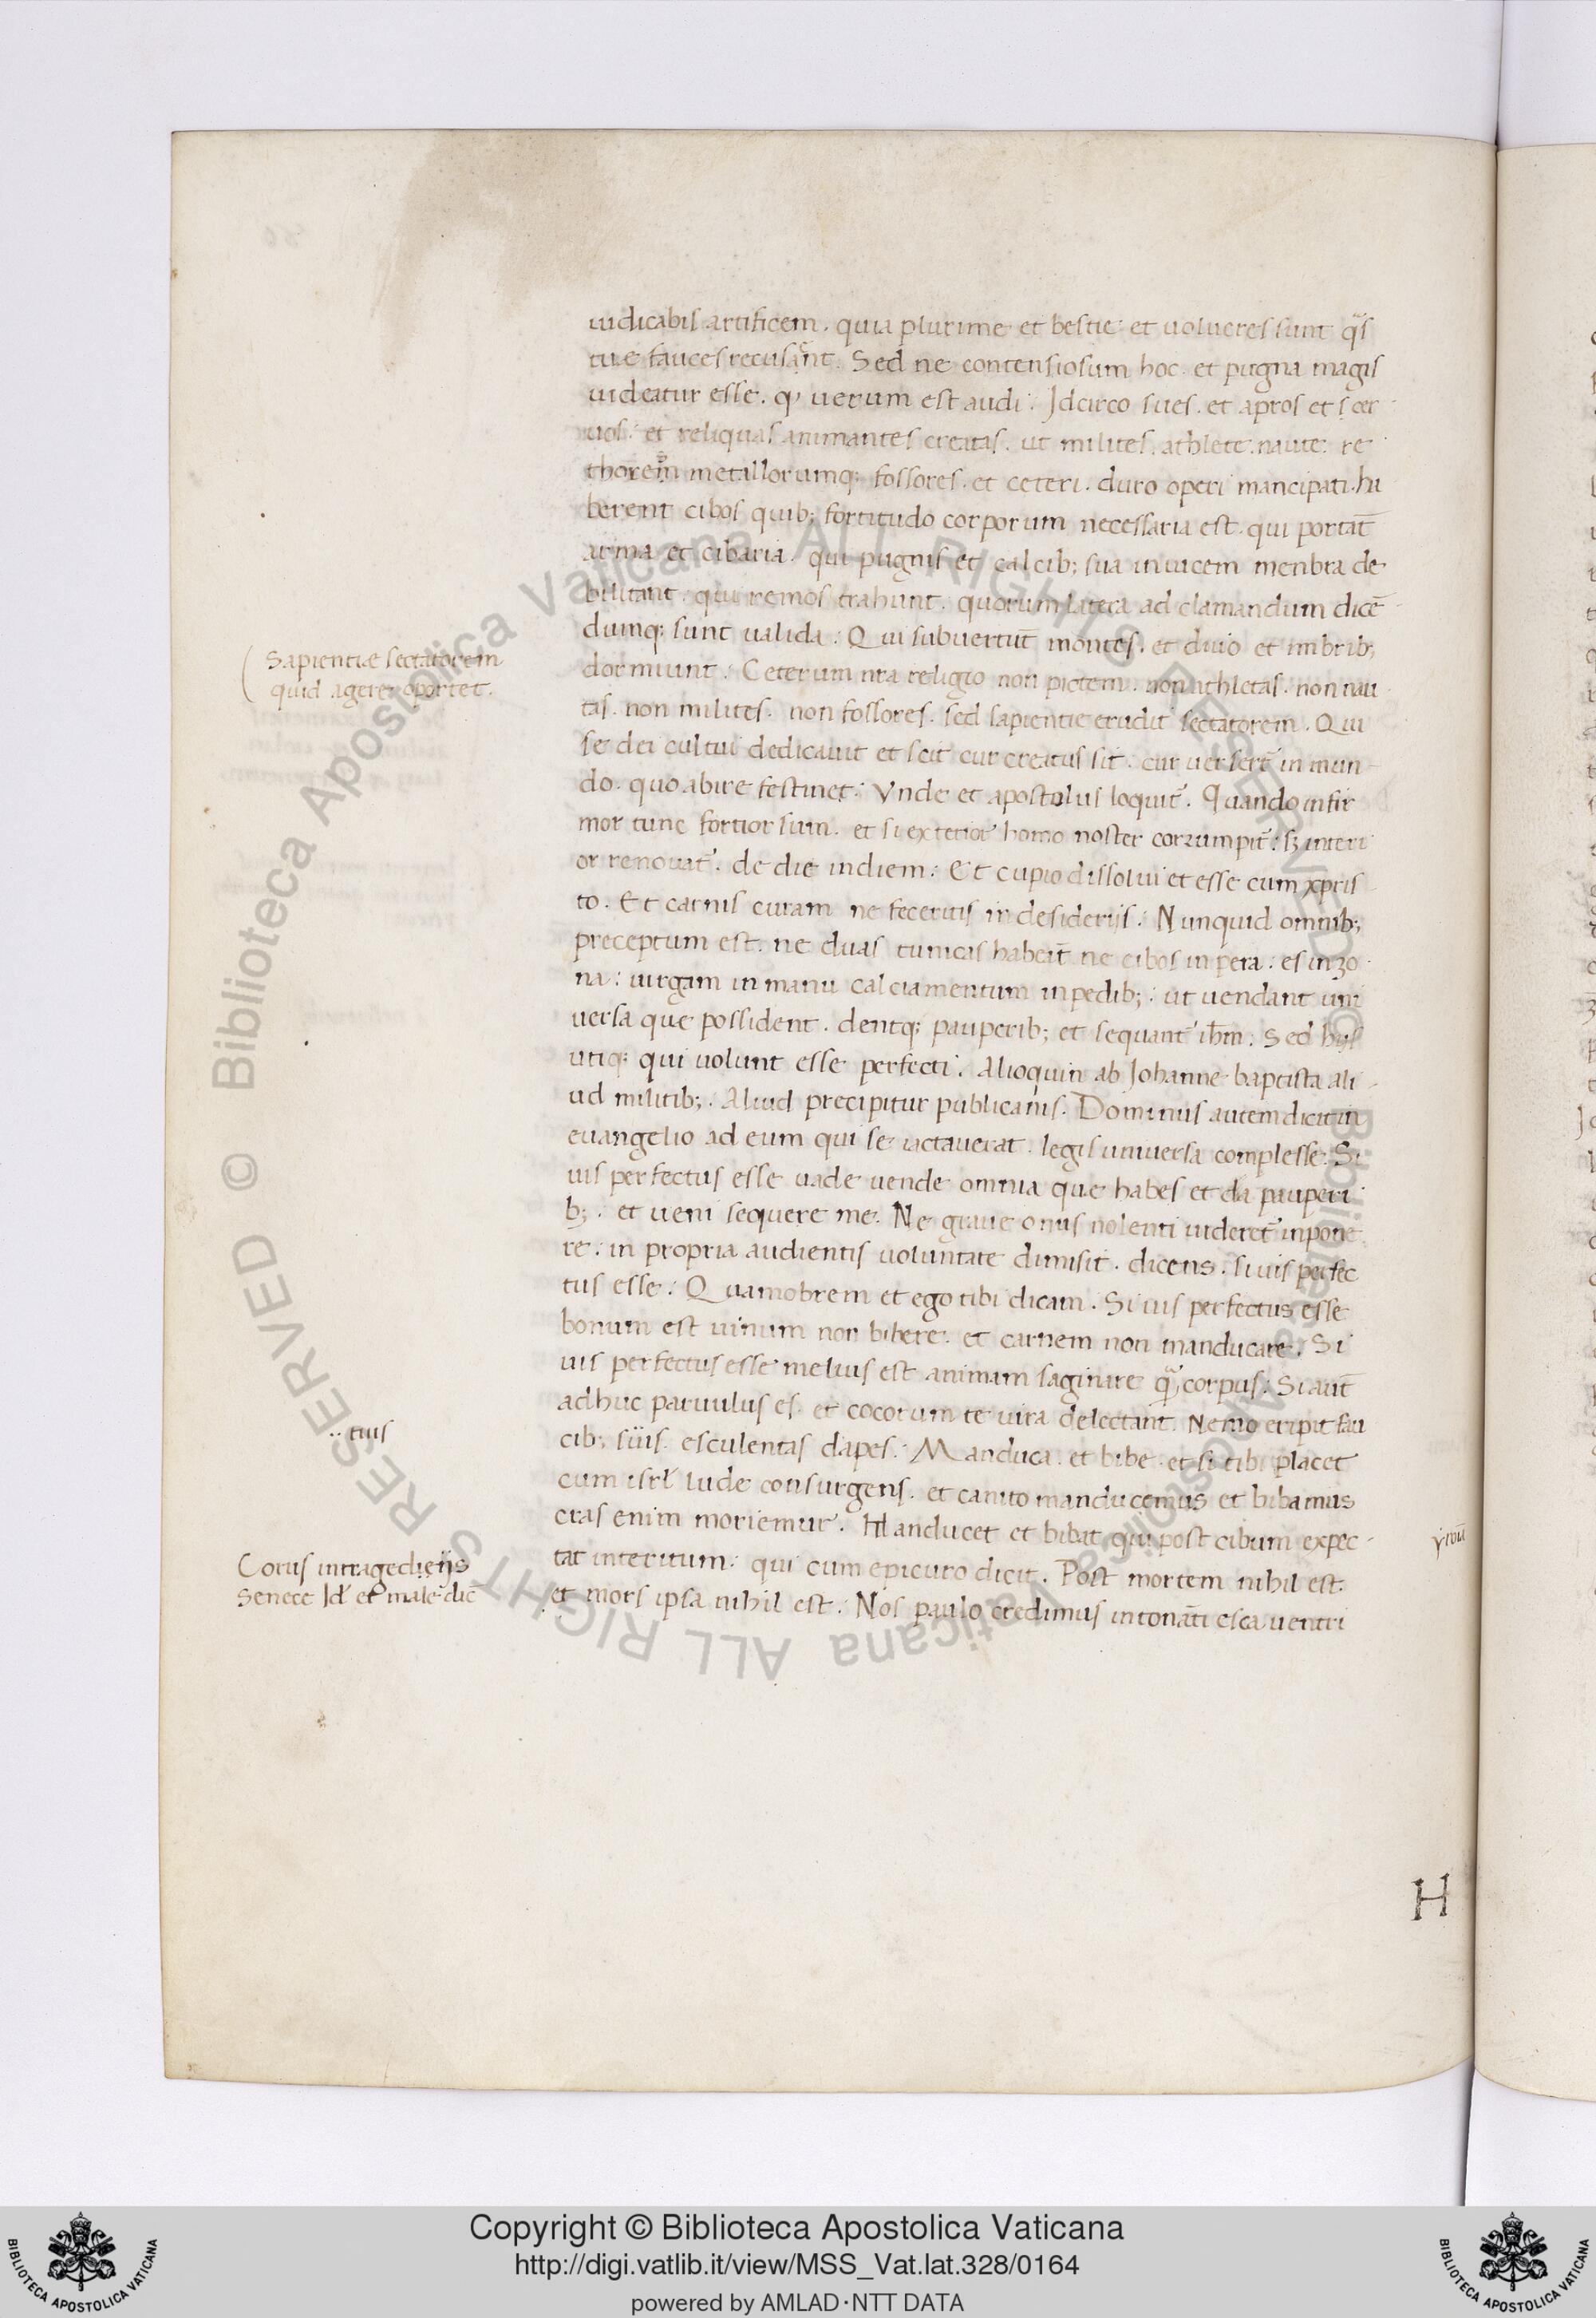 iudicabis artificem. quia plurime et bestie et uolucres sunt q̃s
tue fauces recusant. Sed ne contensiosum hoc. et pugna magis
uideatur esse. qđ uerum est audi. Jdcirco sues. et apros et cer
uos. et reliquas animantes creatas. ut milites. athlete. naute. re
thorem metallorumq; fossores. et ceteri. duro operi mancipati. ha
berent cibos quib; fortitudo corporum necessaria est. qui portāt
arma et cibaria. qui pugnis et calcib; sua inuicem menbra de
bilitant. qui remos trahunt. quorum latera ad clamandum dicē
dumq; sunt ualida. Qui subuertūt montes. et diuo et imbrib;
dormiunt. Ceterum nr̃a religio non pictem. non athletas. non nau
tas. non milites. non fossores. sed sapientie erudit sectatorem. Qui
se dei cultui dedicauit et scit cur creatus sit. cur uersetr̃ in mun
do. quo abire festinet. Vnde et apostolus loquit̃. Quando infir
mor tunc fortior sum. et si exterior homo noster corrumpit̃. sʒ interi
or renouat̃. de die indiem. Et cupio dissolui et esse cum xp̃ris
to. Et carnis curam ne feceritis in desiderijs. Nunquid omnib;
preceptum est. ne duas tunicas habeāt ne cibos in pera. es in zo
na. uirgam in manu calciamentum in pedib;. ut uendant uni
uersa que possident. dentq; pauperib; et sequant̃ ih̄m. Sed hijs
utiq; qui uolunt esse perfecti. Alioquin ab Johanne baptista ali
ud militib;. Aliud precipitur publicanis. Dominus autem dicit in
euangelio ad eum qui se iactauerat. legis uniuersa complesse. Si
uis perfectus esse uade uende omnia que habes et da pauperi
b;. et ueni sequere me. Ne graue onus nolenti uideret̃ inpone
re. in propria audientis uoluntate dimisit. dicens. si uis perfec
tus esse. Quamobrem et ego tibi dicam. Si uis perfectus esse
bonum est uinum non bibere. et carnem non manducare. Si
uis perfectus esse melius est animam saginare q̃ corpus. Si aūt
adhuc paruulus es. et cocorum te iura delectant. Nemo eripit fau
cib; suis esculentas dapes. Manduca. et bibe. et si tibi placet
cum isrl̃ lude consurgens. et canito manducemus et bibamus
cras enim moriemur. Manducet et bibat qui post cibum expec
tat interitum. qui cum epicuro dicit. Post mortem nihil est.
et mors ipsa nihil est. Nos paulo credimus intonāti esca uentri
Sapientiae sectatorem
quid agere oportet.
.. tuis
Corus in tragediejis
Senece Id et male dic̃
H
© Biblioteca Apostolica Vaticana ALL RIGHTS RESERVED
© Biblioteca Apostolica Vaticana ALL RIGHTS RESERVED
BIBLIOTECA APOSTOLICA VATICANA
Copyright © Biblioteca Apostolica Vaticana
http://digi.vatlib.it/view/MSS_Vat.lat.328/0164
powered by AMLAD·NTT DATA
BIBLIOTECA APOSTOLICA VATICANA